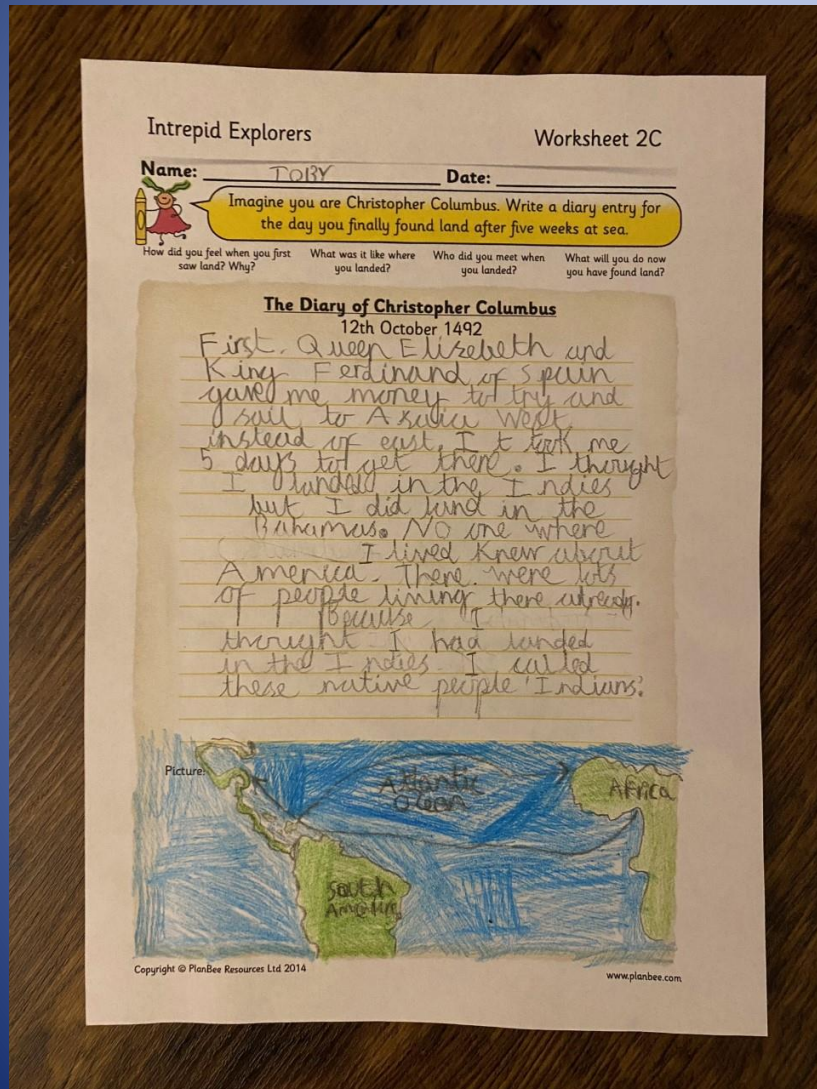 Intrepid Explorers
Worksheet 2C
Name: TOBY Date:
Imagine you are Christopher Columbus. Write a diary entry for
the day you finally found land after five weeks at sea.
How did you feel when you first
saw land? Why?
What was it like where
you landed?
Who did you meet when
you landed?
What will you do now
you have found land?
The Diary of Christopher Columbus
12th October 1492
First, Queen Elizebeth and
King Ferdinand of Spain
gave me money to try and
sail to Asaia West
instead of east. It took me
5 days to get there. I thought
I landed in the Indies
but I did land in the
Bahamas. No one where
I lived knew about
America. There were lots
of people lining there already.
Because I
thought I had landed
in the Indies I called
these native people 'Indians'.
Picture:
Atlantic
Ocean
Africa
South
America
Copyright © PlanBee Resources Ltd 2014
www.planbee.com